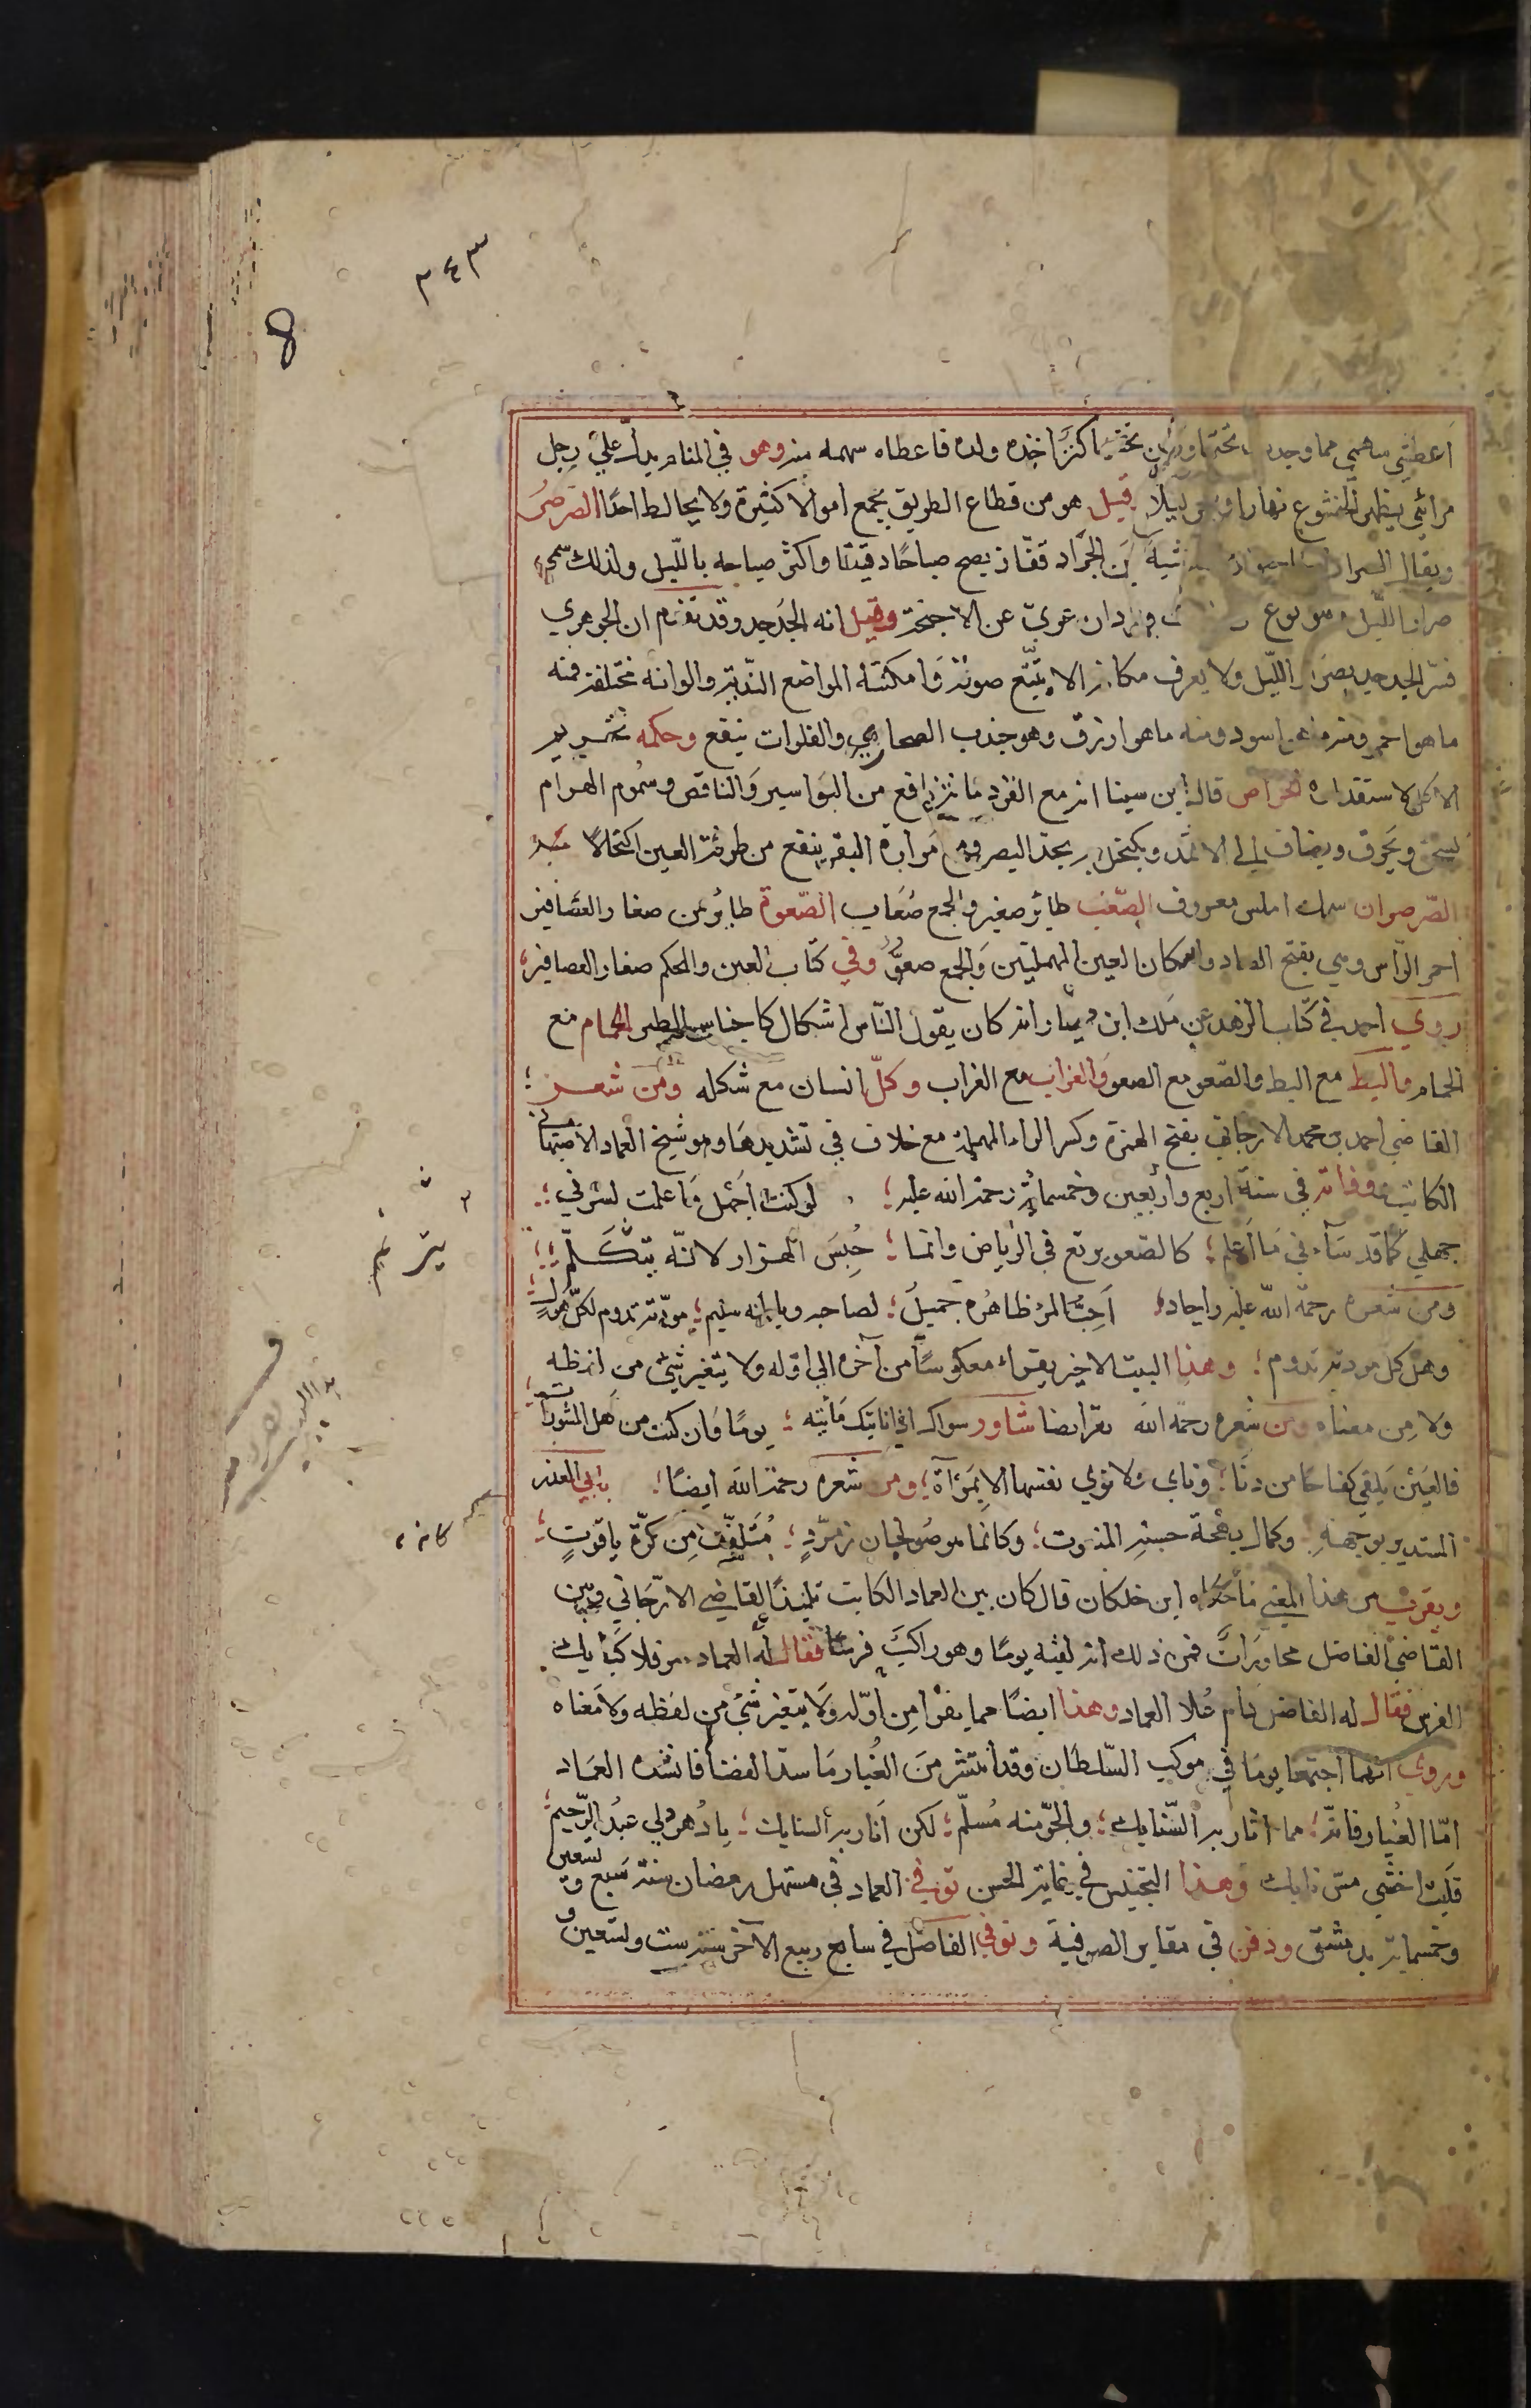 ٣٤٣
8
أعطني سهمي مما وجدت تحتها وكان تحتها كنزًا أخذه ولده فاعطاه سهمه منه وهو في المنام يدلّ علي رجل
مرائي يظهر الخشوع نهارا وفجر ليلاً قيل هو من قطاع الطريق يجمع اموالا كثيرة ولا يخالط احدًا الصرصر
ويقال الصرار شبه من الجراد قفّاز يصيح صياحًا دقيقا واكثر صياحه بالليل ولذلك سمي
صرار الليل وهو نوع من بنات وردان عري عن الاجنحة وقيل انه الجدجد وقد تقدم ان الجوهري
فسّر الجدجد بصرار الليل ولا يعرف مكانه الا بتتبّع صوته وامكنته المواضع النّدية والوانه مختلفة فمنه
ما هو احمر ومنه ما هو اسود ومنه ما هو ازرق وهو جندب الصحاري والفلوات ينفع وحكمه تحريم
الاكل لاستقذاره الخواص قال ابن سينا انه مع القردمانة نافع من البواسير والنافض وسموم الهوام
يسحق ويحرق ويضاف الي الاثمد ويكتحل به يحد البصر ومع مرارة البقر ينفع من طرفة العين اكتحالا
الصّرصران سمك املس معروف الصّعب طائر صغير والجمع صعاب الصّعوة طائر من صغار العصافير
احمر الرأس وهي بفتح الصاد واسكان العين المهملتين والجمع صعوٌ وفي كتاب العين والمحكم صغار العصافير
روي احمد في كتاب الزهد عن ملك ابن دينار انه كان يقول الناس اشكال كاجناس الطير الحمام مع
الحمام والبط مع البط والصّعو مع الصعو والغراب مع الغراب وكلّ انسان مع شكله ومن شعر
القاضي احمد بن محمد الارجاني بفتح الهمزة وكسر الراء المهملة مع خلاف في تشديدها وهو شيخ العماد الاصبهاني
الكاتب ووفاته في سنة اربع واربعين وخمسمائة رحمة الله عليه لو كنت اجهل ما علمت لسرني
جهلي كما قد ساء في ما اعلم كالصّعو يرتع في الرياض وانما حُبِسَ الهزار لانّه يتكلّم
يترنم
ومن شعره رحمة الله عليه واجاد احبّ المرء ظاهره جميل لصاحبه وباطنه سليم مودّته تدوم لكل هول
وهل كل مودته تدوم وهذا البيت الاخير يقراء معكوسًا من آخره الي اوّله ولا يتغير شيء من لفظه
ولا من معناه ومن شعره رحمه الله ايضا شاور سواك اذا نابتك نائبة يومًا وان كنت من اهل المشورات
فالعين يلقي كفاحًا من دنا وناي ولا تري نفسها الا بمرآة ومن شعره رحمة الله ايضًا بابي العذار
المستدير بوجهه وكمال بهجة حسنه المنعوت وكانما هو صولجان زمرّد متلقّف من كرة ياقوت
كانه
ويقرب من هذا المعني ما حكاه ابن خلكان قال كان بين العماد الكاتب تلميذ القاضي الارّجاني وبين
القاضي الفاضل محاورات فمن ذلك انه لقيه يومًا وهو راكب فرسًا فقال له العماد سر فلا كبا بك
الفرس فقال له الفاضل دام علا العماد وهذا ايضًا مما يقرأ من اوّله ولا يتغير شيء من لفظه ولا معناه
وروي انهما اجتمعا يومًا في موكب السّلطان وقد انتشر من الغبار ما سدّ الفضا فانشده العماد
امّا الغبار فانّه مما اثارته السّنابك والجوّ منه مسلّم لكن انار به السنابك يا دهر لي عبد الرّحيم
فليت اخشي مسّ نابك وهذا التجنيس في غاية الحسن توفي العماد في مستهل رمضان سنة سبع وتسعين
وخمسماية بدمشق ودفن في مقابر الصوفية وتوفي الفاضل في سابع ربيع الآخر سنة ست وتسعين و